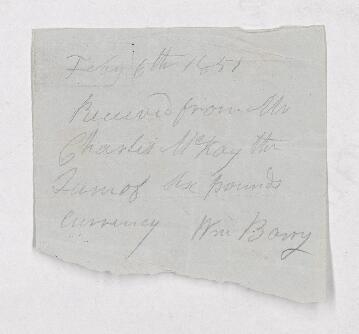 Feby 6th 1851
Received from Mr
Charles McKay the
Sum of six pounds
currency Wm Barry